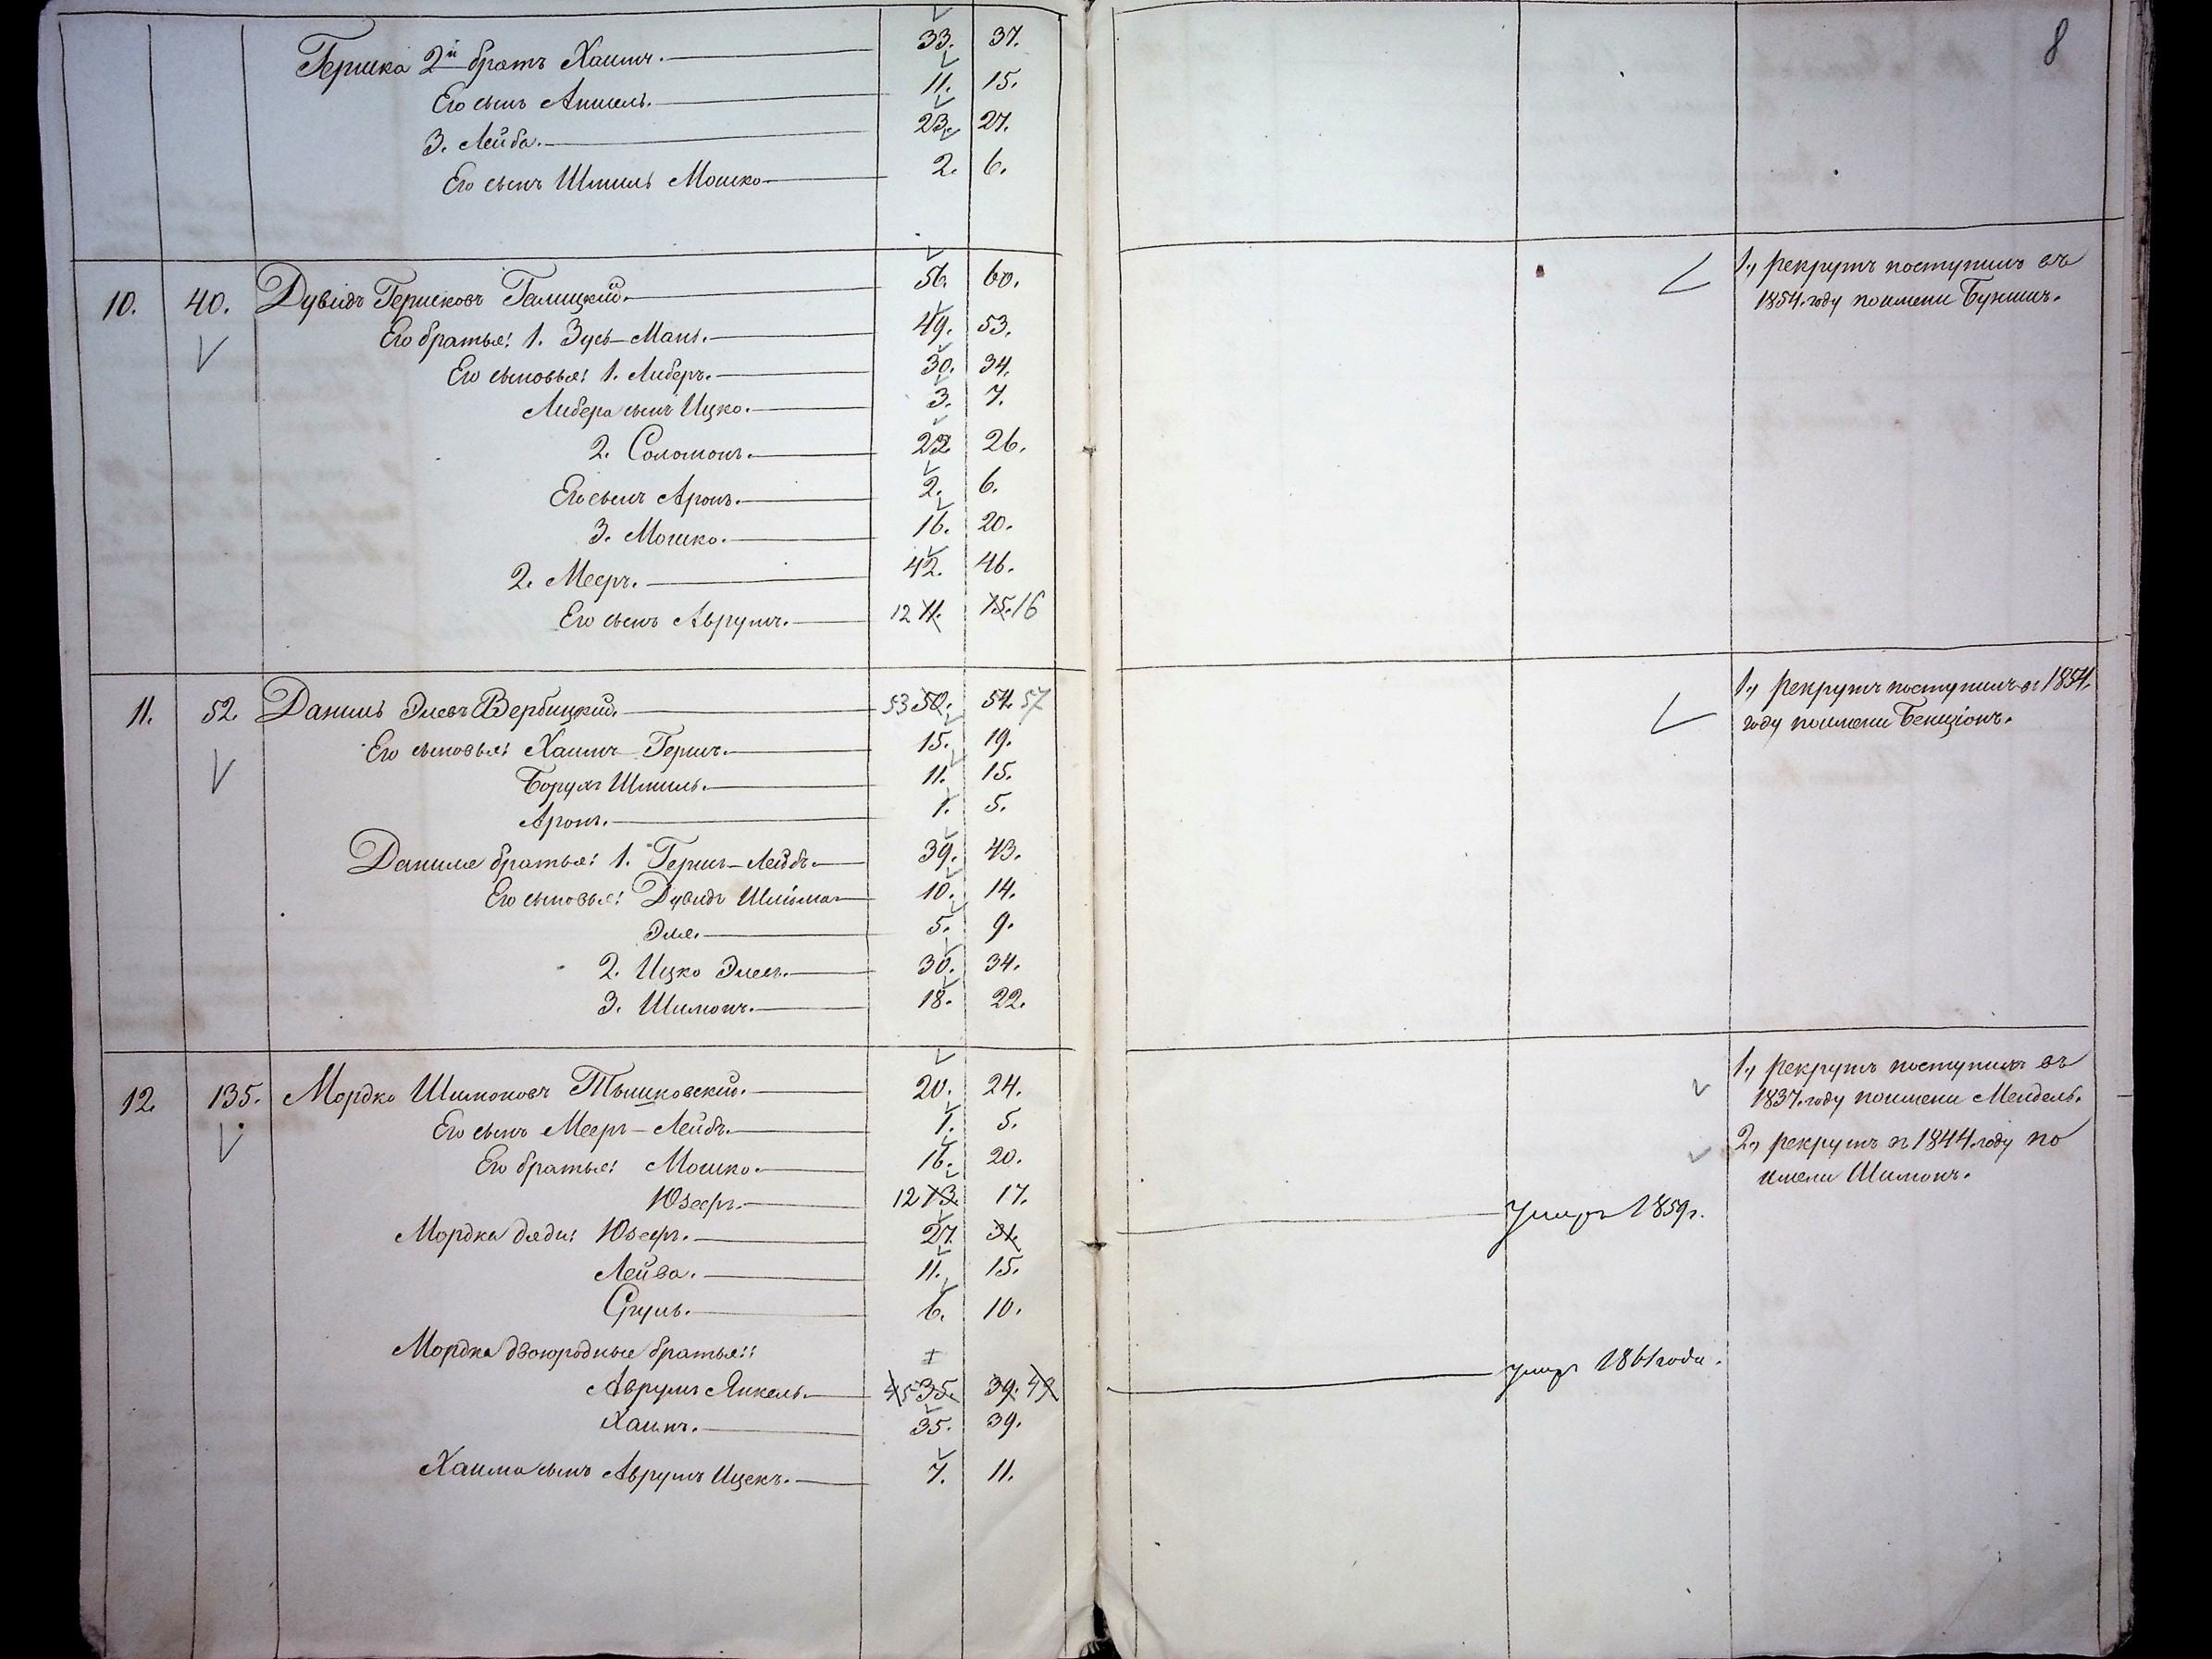 8
Гершка 2й братъ Хаимъ. 33. 37.
Его сынъ Аншель. 11. 15.
3. Лейба. 23. 27.
Его сынъ Шмиль Мошко 2. 6.
10. 40. Дувидъ Гершковъ Галицкій. 56. 60.
1., рекрутъ поступилъ въ
1854. году по имени Бунимъ.
Его братья: 1. Зусь-Мань. 49. 53.
Его сыновья: 1. Либеръ. 30. 34.
Либера сынъ Ицко. 3. 7.
2. Соломонъ. 22. 26.
Его сынъ Аронъ. 2. 6.
3. Мошко. 16. 20.
2. Мееръ. 42. 46.
Его сынъ Аврумъ. 12 11. 15. 16
11. 52. Даниль Элевъ Вербицкій. 53 50. 54. 57
1., рекрутъ поступилъ въ 1854.
году по имени Бенціонъ.
Его сыновья: Хаимъ Гершъ. 15. 19.
Борухъ Шмиль. 11. 15.
Аронъ. 1. 5.
Даниля братья: 1. Гершъ-Лейбъ. 39. 43.
Его сыновья: Дувидъ Шлйома 10. 14.
Эля. 5. 9.
2. Ицко 30. 34.
3. Шимонъ. 18. 22.
12. 135. Мордко Шимоновъ Тышковскій. 20. 24.
1., рекрутъ поступилъ въ
1837. году по имени Мендель.
2., рекрутъ въ 1844. году по
имени Шимонъ.
Его сынъ Мееръ-Лейбъ. 1. 5.
Его братья: Мошко. 16. 20.
Юзефъ. 12 13. 17.
Мордка дяди: Юзефъ. 27. 31. умеръ 1859 г.
Лейва. 11. 15.
Сруль. 6. 10.
Мордка двоюродные братья::
Аврумъ Янкель. 45 35. 39. 49 умеръ 1861 года.
Хаимъ. 35. 39.
Хаима сынъ Аврумъ Ицекъ. 7. 11.